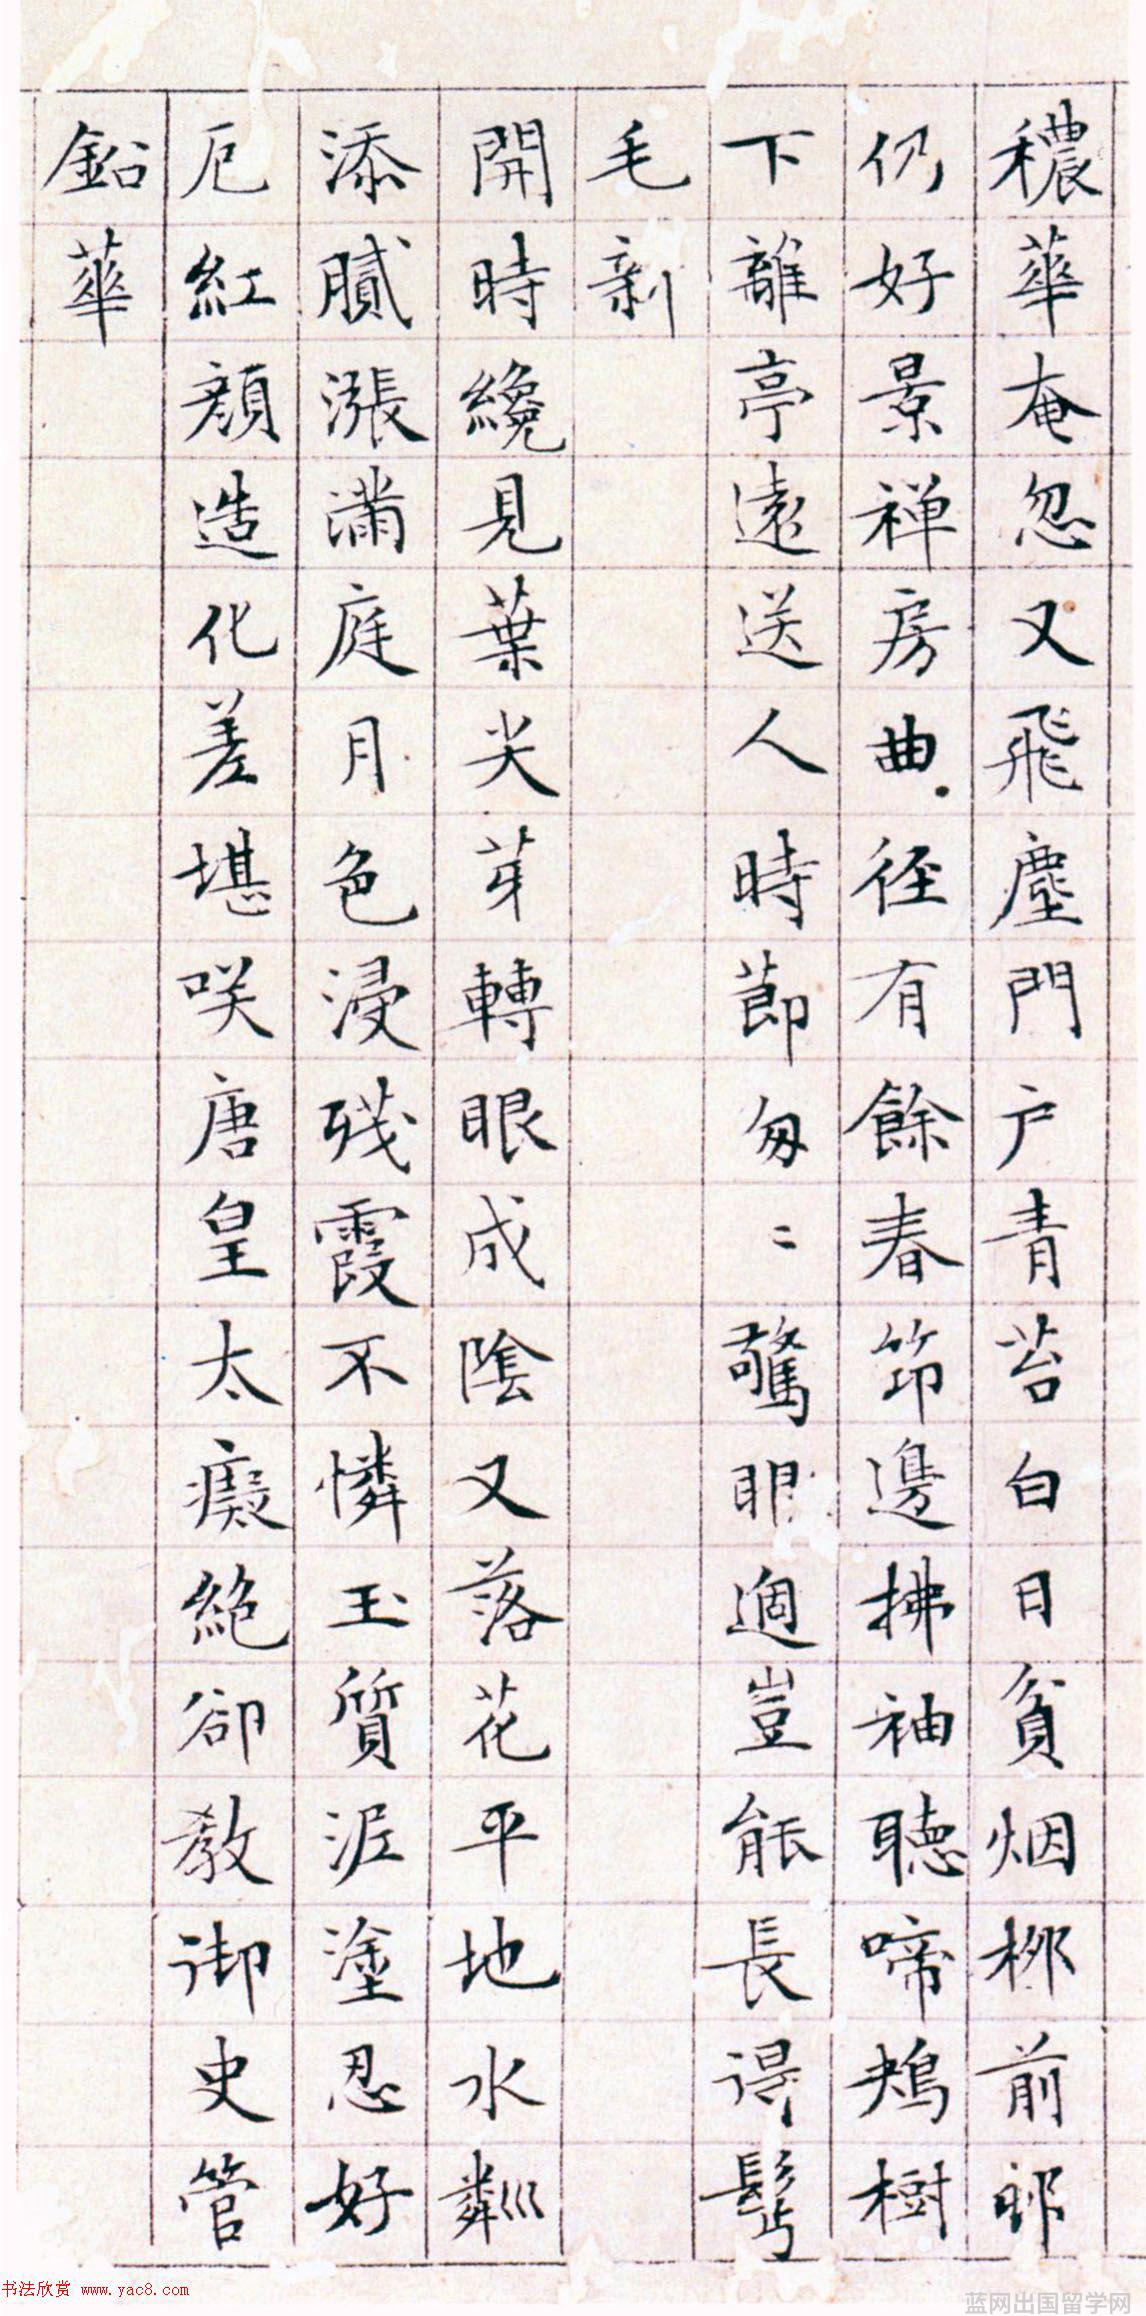 穠華奄忽又飛塵門户青苔白日貧烟栁前邨
仍好景禅房曲徑有餘春笻邊拂袖聽啼鴂樹
下離亭遠送人時莭匆〻驚眼過豈能長得髩
毛新
開時纔見葉尖芽轉眼成陰又落花平地水粼
添膩漲滿庭月色浸殘霞不憐玉質泥塗忍好
厄紅顔造化差堪咲唐皇太癡絶卻教御史管
鉛華
书法欣赏 www.yac8.com
蓝网出国留学网